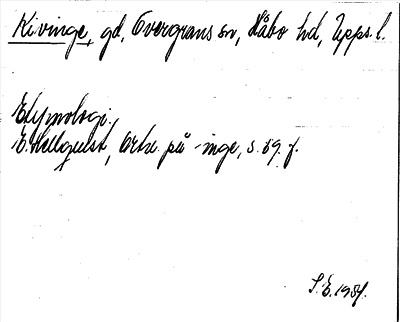 Kivinge, gd, Övergrans sn, Håbo hd, Upps. l.
Etymologi.
E. Hellquist, Ortn. på -inge, s. 59 f.
S. E. 1934.